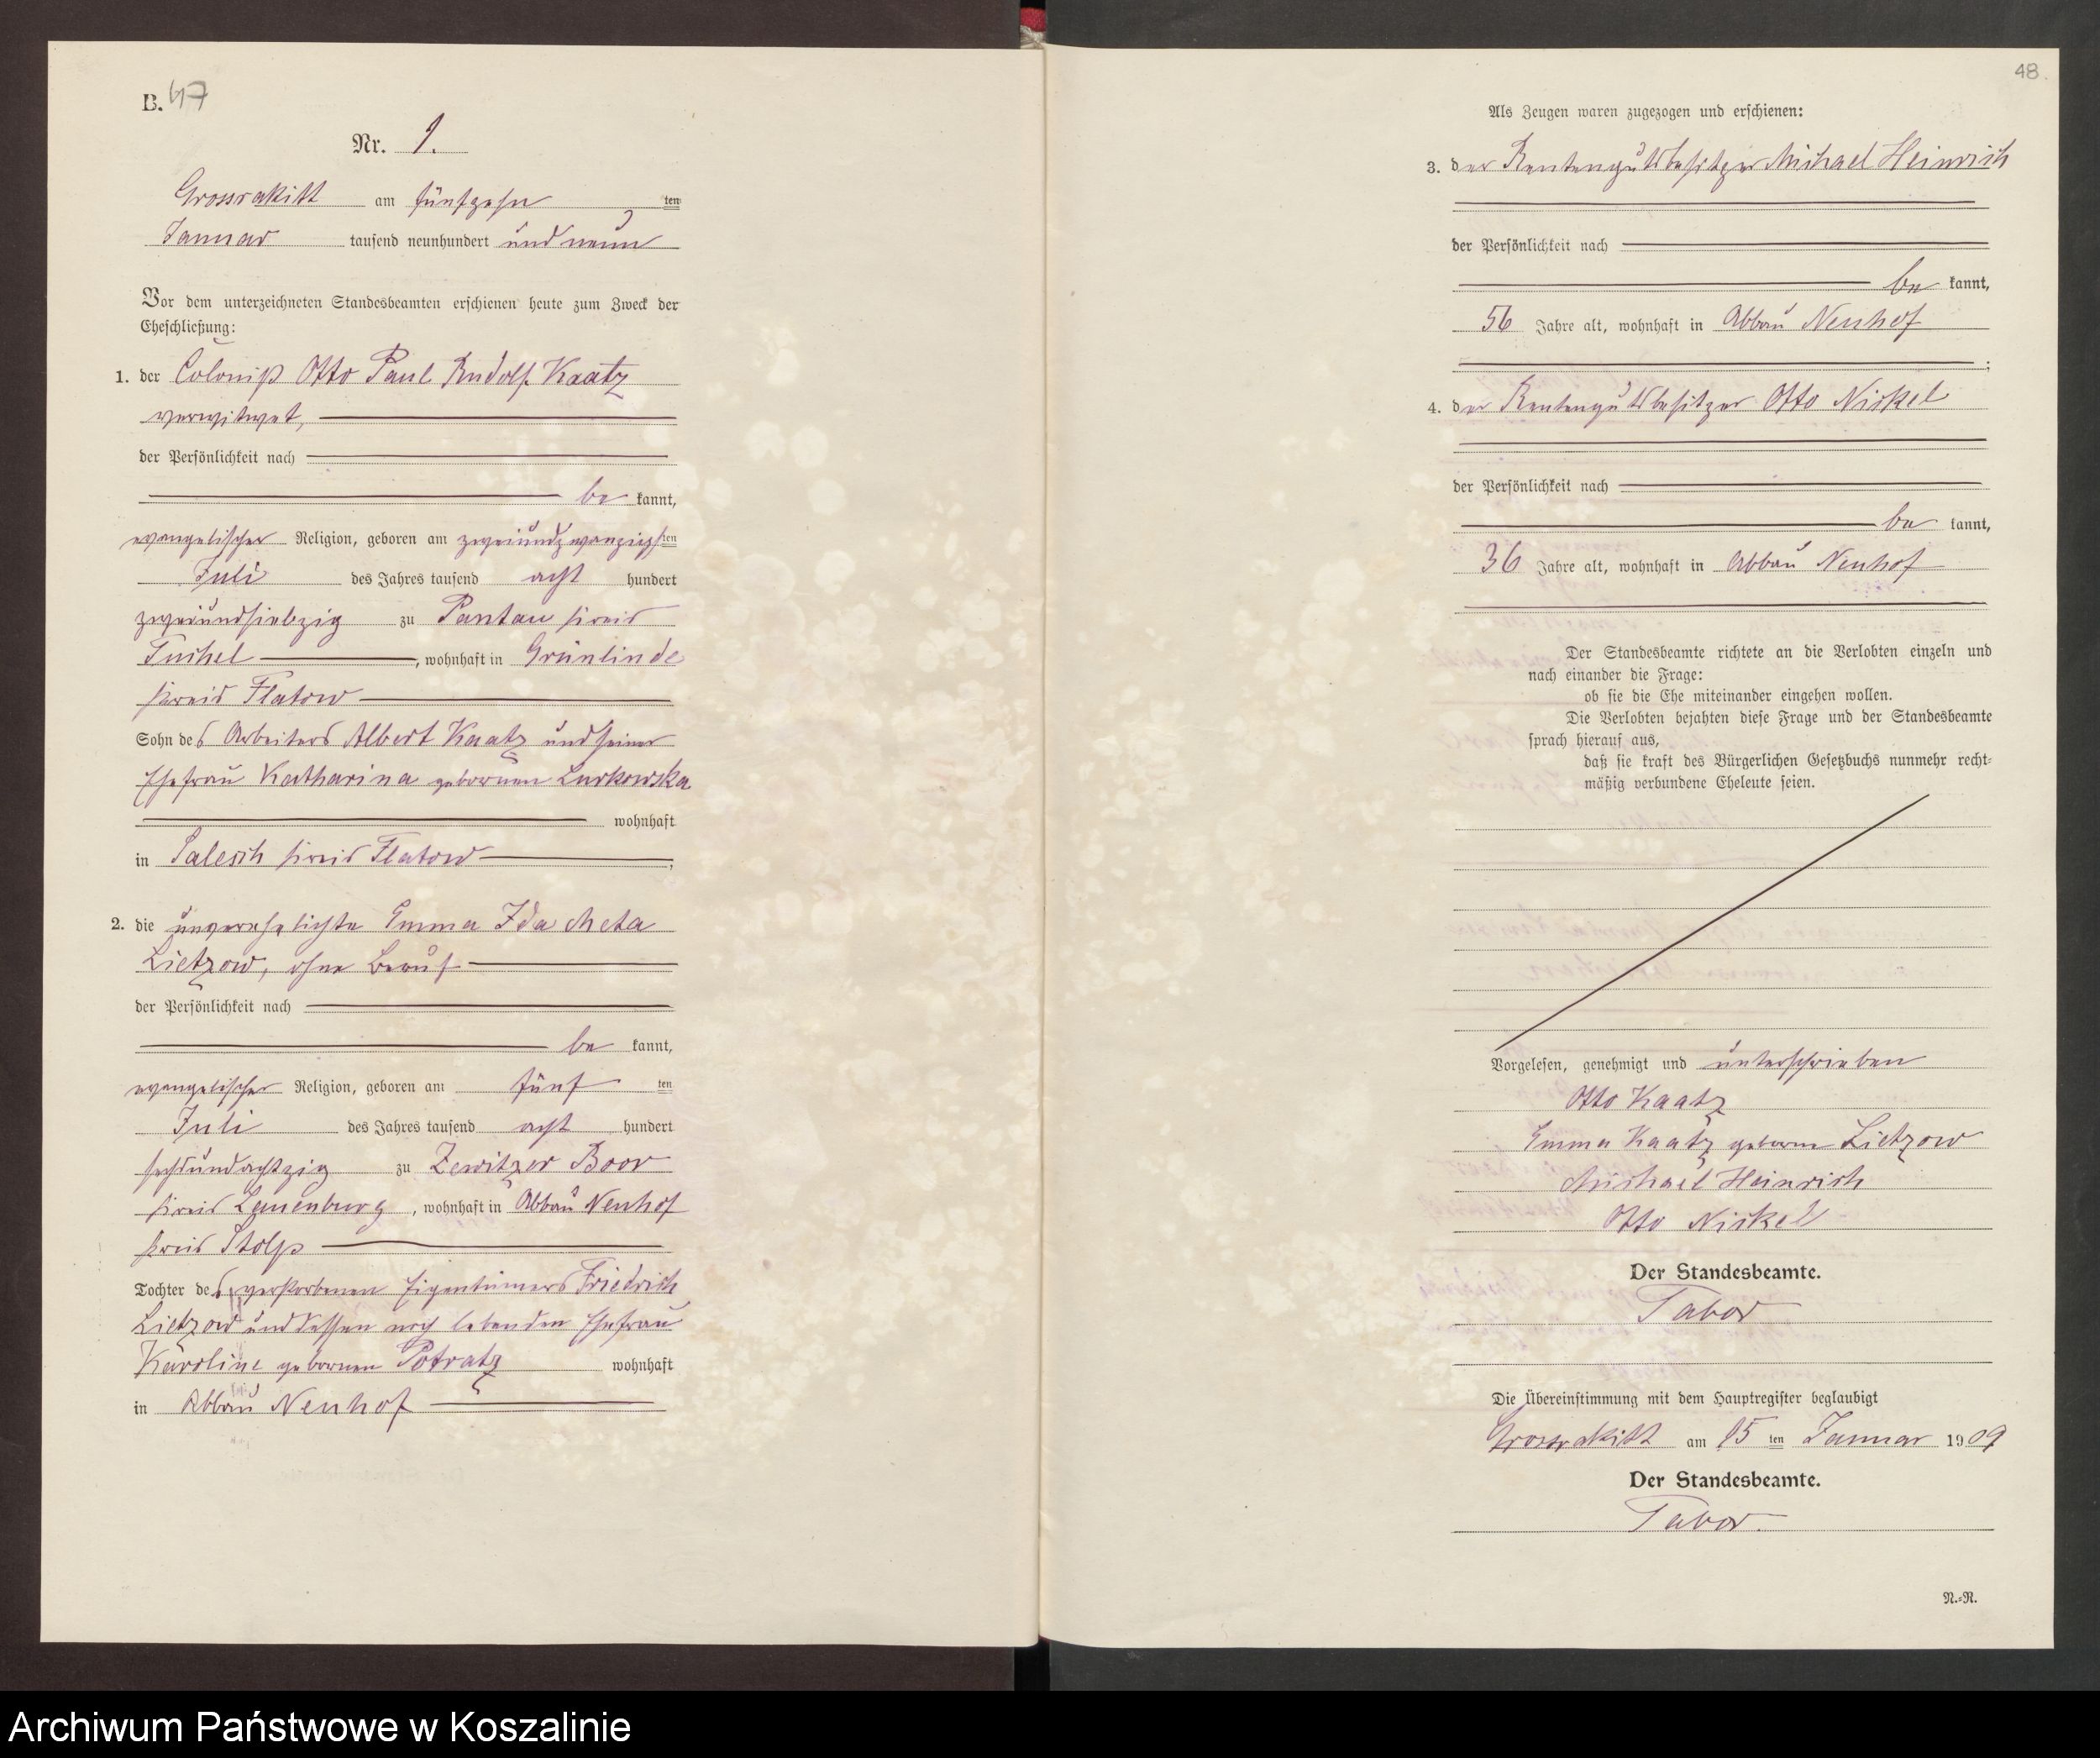 B. 47
Nr. 1.
Grossrakitt am fünfzehn ten
Januar tausend neunhundert und neun
Vor dem unterzeichneten Standesbeamten erschienen heute zum Zweck der
Eheschließung:
1. der Colonist Otto Paul Rudolf Kaatz
verwitwet,
der Persönlichkeit nach
be kannt,
evangelischer Religion, geboren am zweiundzwanzigsten
Juli des Jahres tausend acht hundert
zweiundsiebzig zu Pantau Kreis
Tuchel, wohnhaft in Grünlinde
Kreis Flatow
Sohn des Arbeiters Albert Kaatz und seiner
Ehefrau Katharina geborenen Lurkowska
wohnhaft
in Salesch Kreis Flatow,
2. die unverehelichte Emma Ida Meta
Lietzow, ohne Beruf
der Persönlichkeit nach
be kannt,
evangelischer Religion, geboren am fünf ten
Juli des Jahres tausend acht hundert
sechsundachtzig zu Zewitzer Boor
Kreis Lauenburg, wohnhaft in Abbau Neuhof
Kreis Stolp
Tochter des verstorbenen Eigentümers Friedrich
Lietzow und dessen noch lebenden Ehefrau
Karoline geborenen Potratz wohnhaft
in Abbau Neuhof
48.
Als Zeugen waren zugezogen und erschienen:
3. der Rentengutsbesitzer Michael Heinrich
der Persönlichkeit nach
be kannt,
56 Jahre alt, wohnhaft in Abbau Neuhof
;
4. der Rentengutsbesitzer Otto Nickel
der Persönlichkeit nach
be kannt,
36 Jahre alt, wohnhaft in Abbau Neuhof
Der Standesbeamte richtete an die Verlobten einzeln und
nach einander die Frage:
ob sie die Ehe miteinander eingehen wollen.
Die Verlobten bejahten diese Frage und der Standesbeamte
sprach hierauf aus,
daß sie kraft des Bürgerlichen Gesetzbuchs nunmehr recht-
mäßig verbundene Eheleute seien.
Vorgelesen, genehmigt und unterschrieben
Otto Kaatz
Emma Kaatz geborne Lietzow
Michael Heinrich
Otto Nickel
Der Standesbeamte.
Tabor
Die Übereinstimmung mit dem Hauptregister beglaubigt
Grossrakitt am 15 ten Januar 1909
Der Standesbeamte.
Tabor.
N.-R.
Archiwum Państwowe w Koszalinie